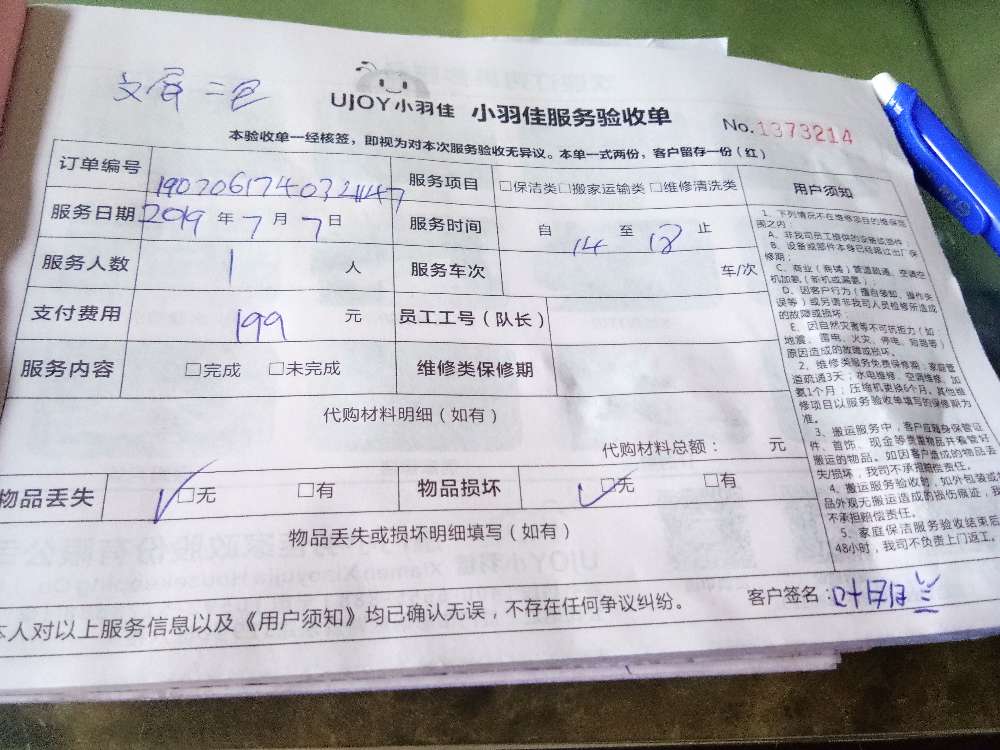 UJOY小羽佳 小羽佳服务验收单
No.1373214
本验收单一经核签，即视为对本次服务验收无异议。本单一式两份，客户留存一份（红）
订单编号
服务项目 □保洁类□搬家运输类 □维修清洗类
用户须知
服务日期 2019 年 7 月 7 日
服务时间 自 14 至 18 止
服务人数 1 人
服务车次 车/次
支付费用 199 元
员工工号（队长）
服务内容 □完成 □未完成
维修类保修期
代购材料明细（如有）
代购材料总额： 元
物品丢失 ✓□无 □有
物品损坏 ✓□无 □有
物品丢失或损坏明细填写（如有）
本人对以上服务信息以及《用户须知》均已确认无误，不存在任何争议纠纷。
客户签名：
1、下列情况不在维修项目的维保范
围之内
A、非我司员工提供的设备或部件
B、设备或部件本身已经超过出厂保
修期；
C、商业（商铺）管道疏通、空调空
机加氨（新机或漏氨）；
D、因客户行为（擅自装卸、操作失
误等）或另请非我司人员检修所造成
的故障或损坏；
E、因自然灾害等不可抗拒力（如：
地震、雷电、火灾、停电、短路等）
原因造成的故障或损坏。
2、维修类服务免费保修期：家庭管
道疏通3天；水电维修、空调维修、加
氨1个月；压缩机更换6个月。其他维
修项目以服务验收单填写的保修期为
准。
3、搬运服务中，客户应随身保管证
件、首饰、现金等贵重物品并看管好
搬运的物品。如因客户造成的物品丢
失/损坏，我司不承担赔偿责任。
4、搬运服务验收时，如外包装或
品外观无搬运造成的损伤痕迹，我
不承担赔偿责任。
5、家庭保洁服务验收结束后
48小时，我司不负责上门返工。